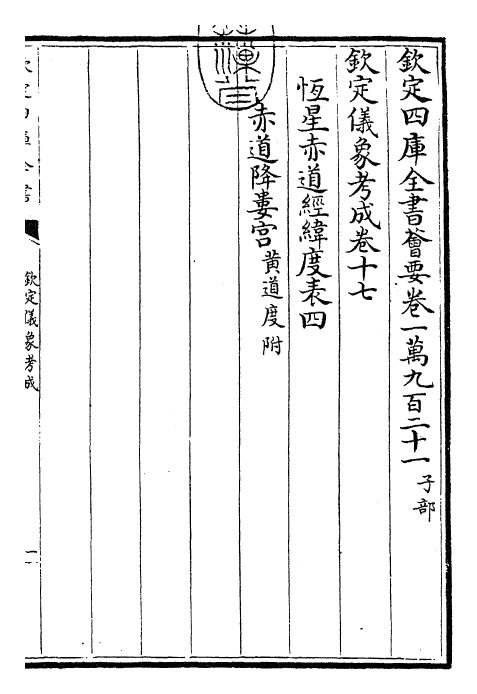 欽定四庫全書薈要卷一萬九百二十一 子部
欽定儀象考成卷十七
恆星赤道經緯度表四
赤道降婁宮 黄道度附
欽定四庫全書
欽定儀象考成
一